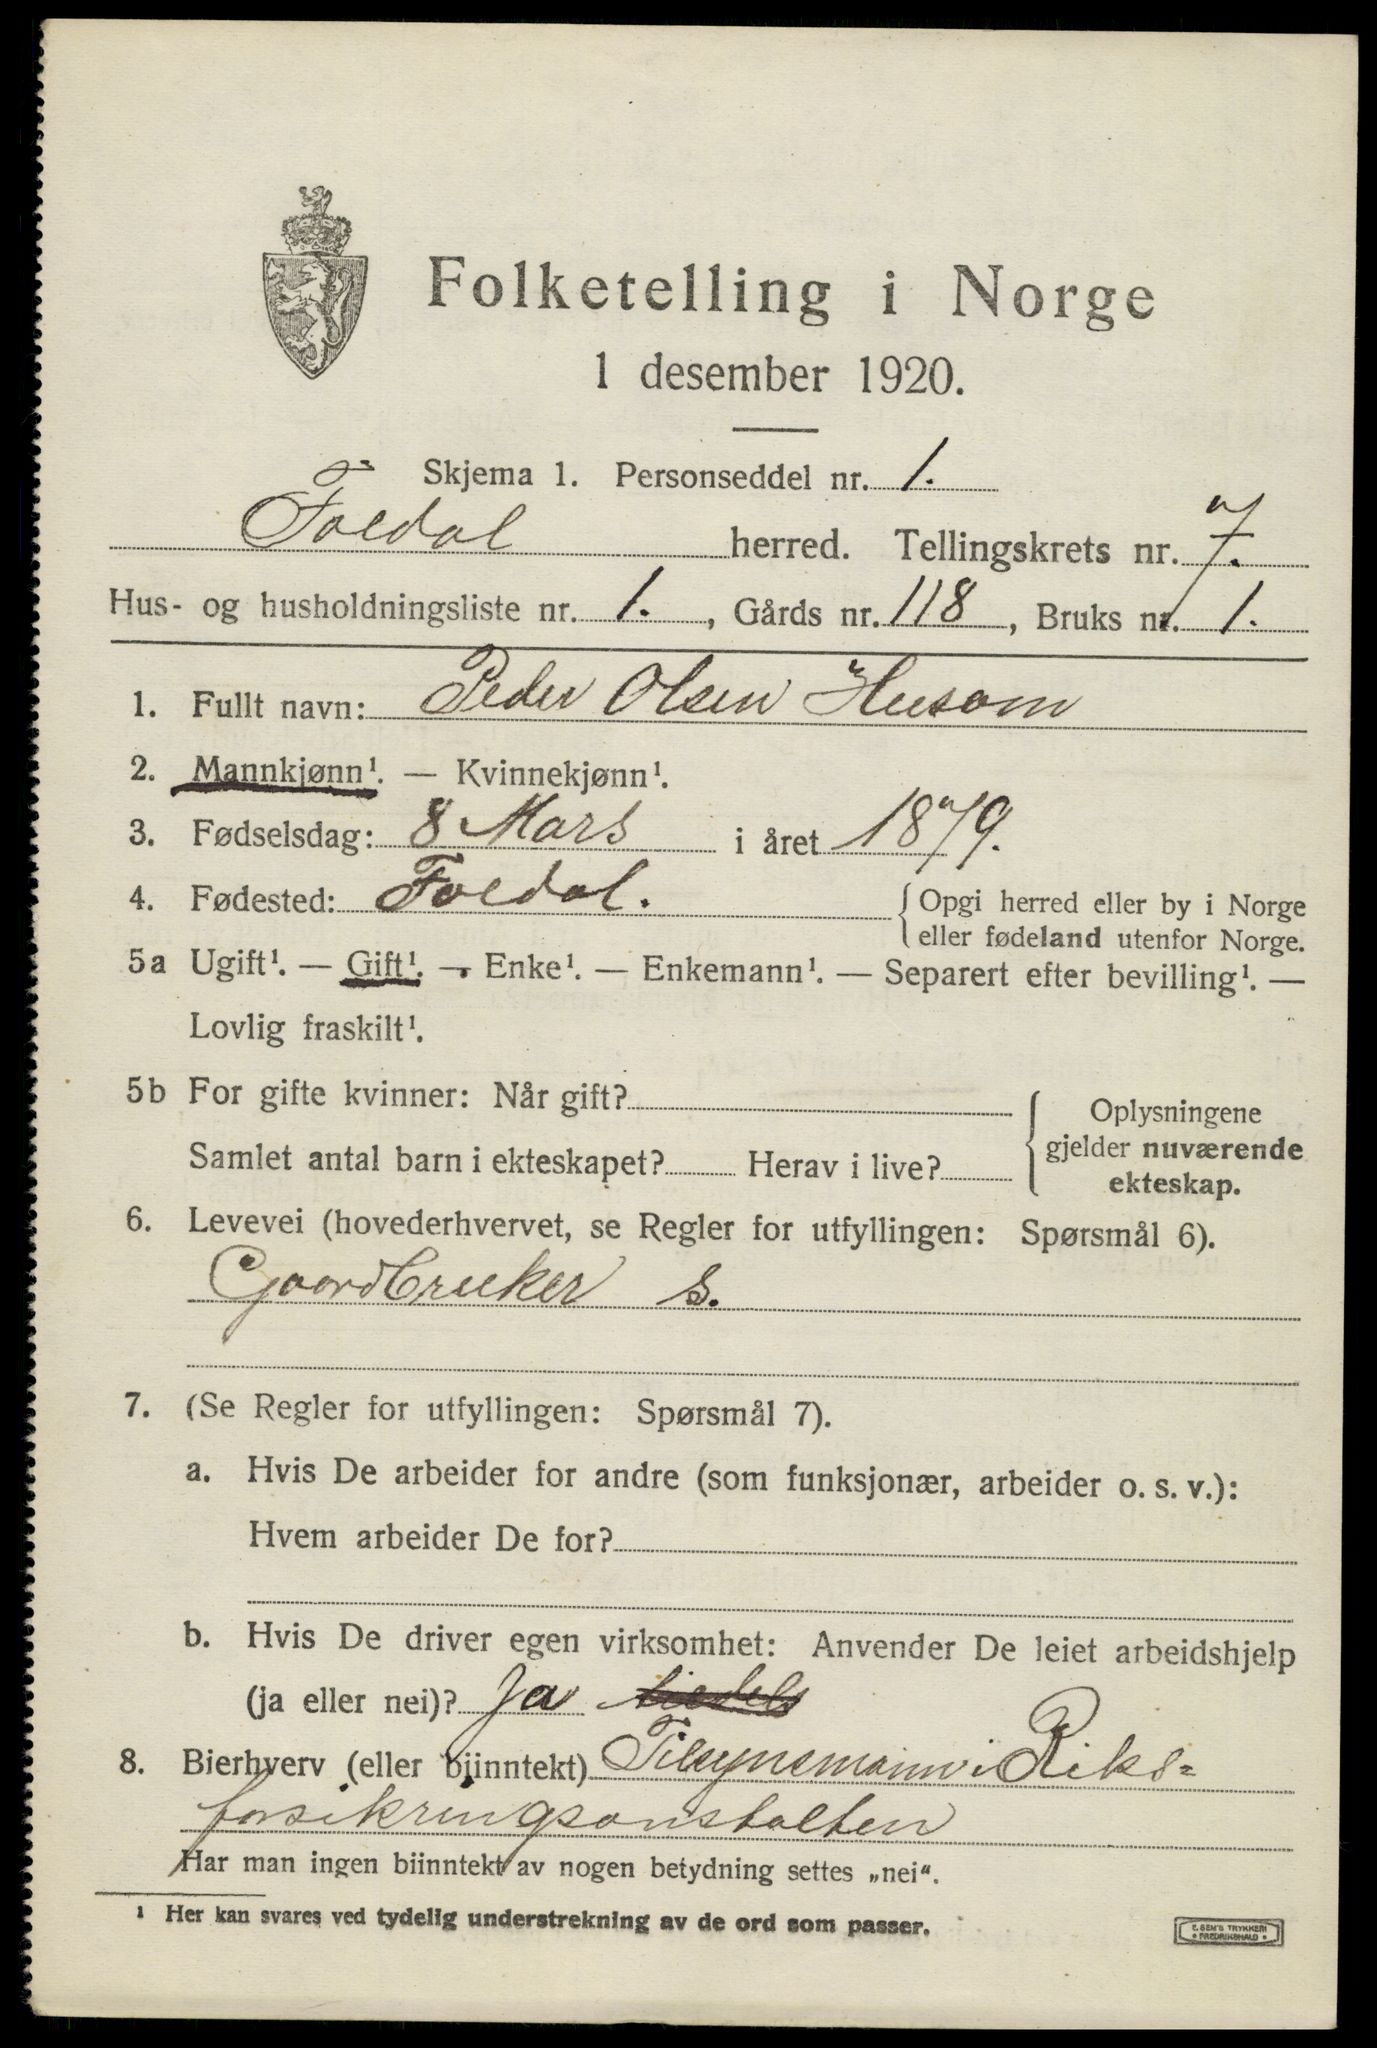 Folketelling i Norge
1 desember 1920.
Skjema 1. Personseddel nr. 1.
Foldal herred. Tellingskrets nr. 7.
Hus- og husholdningsliste nr. 1., Gårds nr. 118, Bruks nr. 1.
1. Fullt navn: Peder Olsen Husom
2. Mannkjønn¹. — Kvinnekjønn¹.
3. Fødselsdag: 8 Mars i året 1879.
4. Fødested: Foldal. { Opgi herred eller by i Norge
eller fødeland utenfor Norge.
5a Ugift¹. — Gift¹. — Enke¹. — Enkemann¹. — Separert efter bevilling¹. —
Lovlig fraskilt¹.
5b For gifte kvinner: Når gift?
Samlet antal barn i ekteskapet? Herav i live?
Oplysningene
gjelder nuværende
ekteskap.
6. Levevei (hovederhvervet, se Regler for utfyllingen: Spørsmål 6).
Gaardbruker s.
7. (Se Regler for utfyllingen: Spørsmål 7).
a. Hvis De arbeider for andre (som funksjonær, arbeider o. s. v.):
Hvem arbeider De for?
b. Hvis De driver egen virksomhet: Anvender De leiet arbeidshjelp
(ja eller nei)? Ja
8. Bierhverv (eller biinntekt) Tilsynsmann i Riks-
forsikringsanstalten
Har man ingen biinntekt av nogen betydning settes „nei“.
¹ Her kan svares ved tydelig understrekning av de ord som passer.
E. SEM'S TRYKKERI
• FREDRIKSHALD •